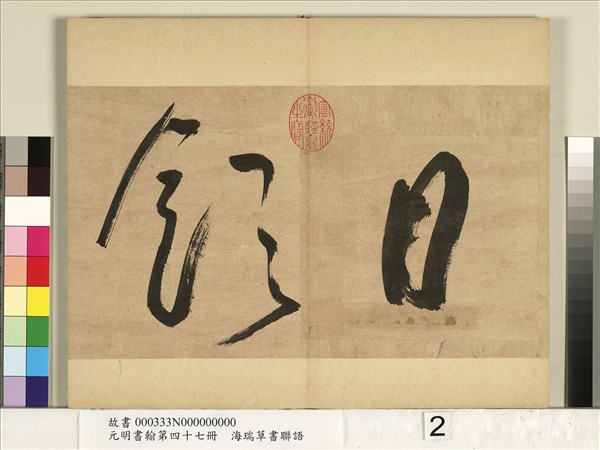 日
飲
宣統御覽之寶
故書 000333N000000000
元明書翰第四十七冊 海瑞草書聯語
2